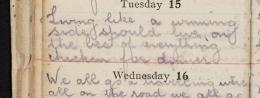 Tuesday 15
Living like a winning
side, should live, on
the best of everything
chicken for dinner.
Wednesday 16
We all go a travelling when
all on the road we all go